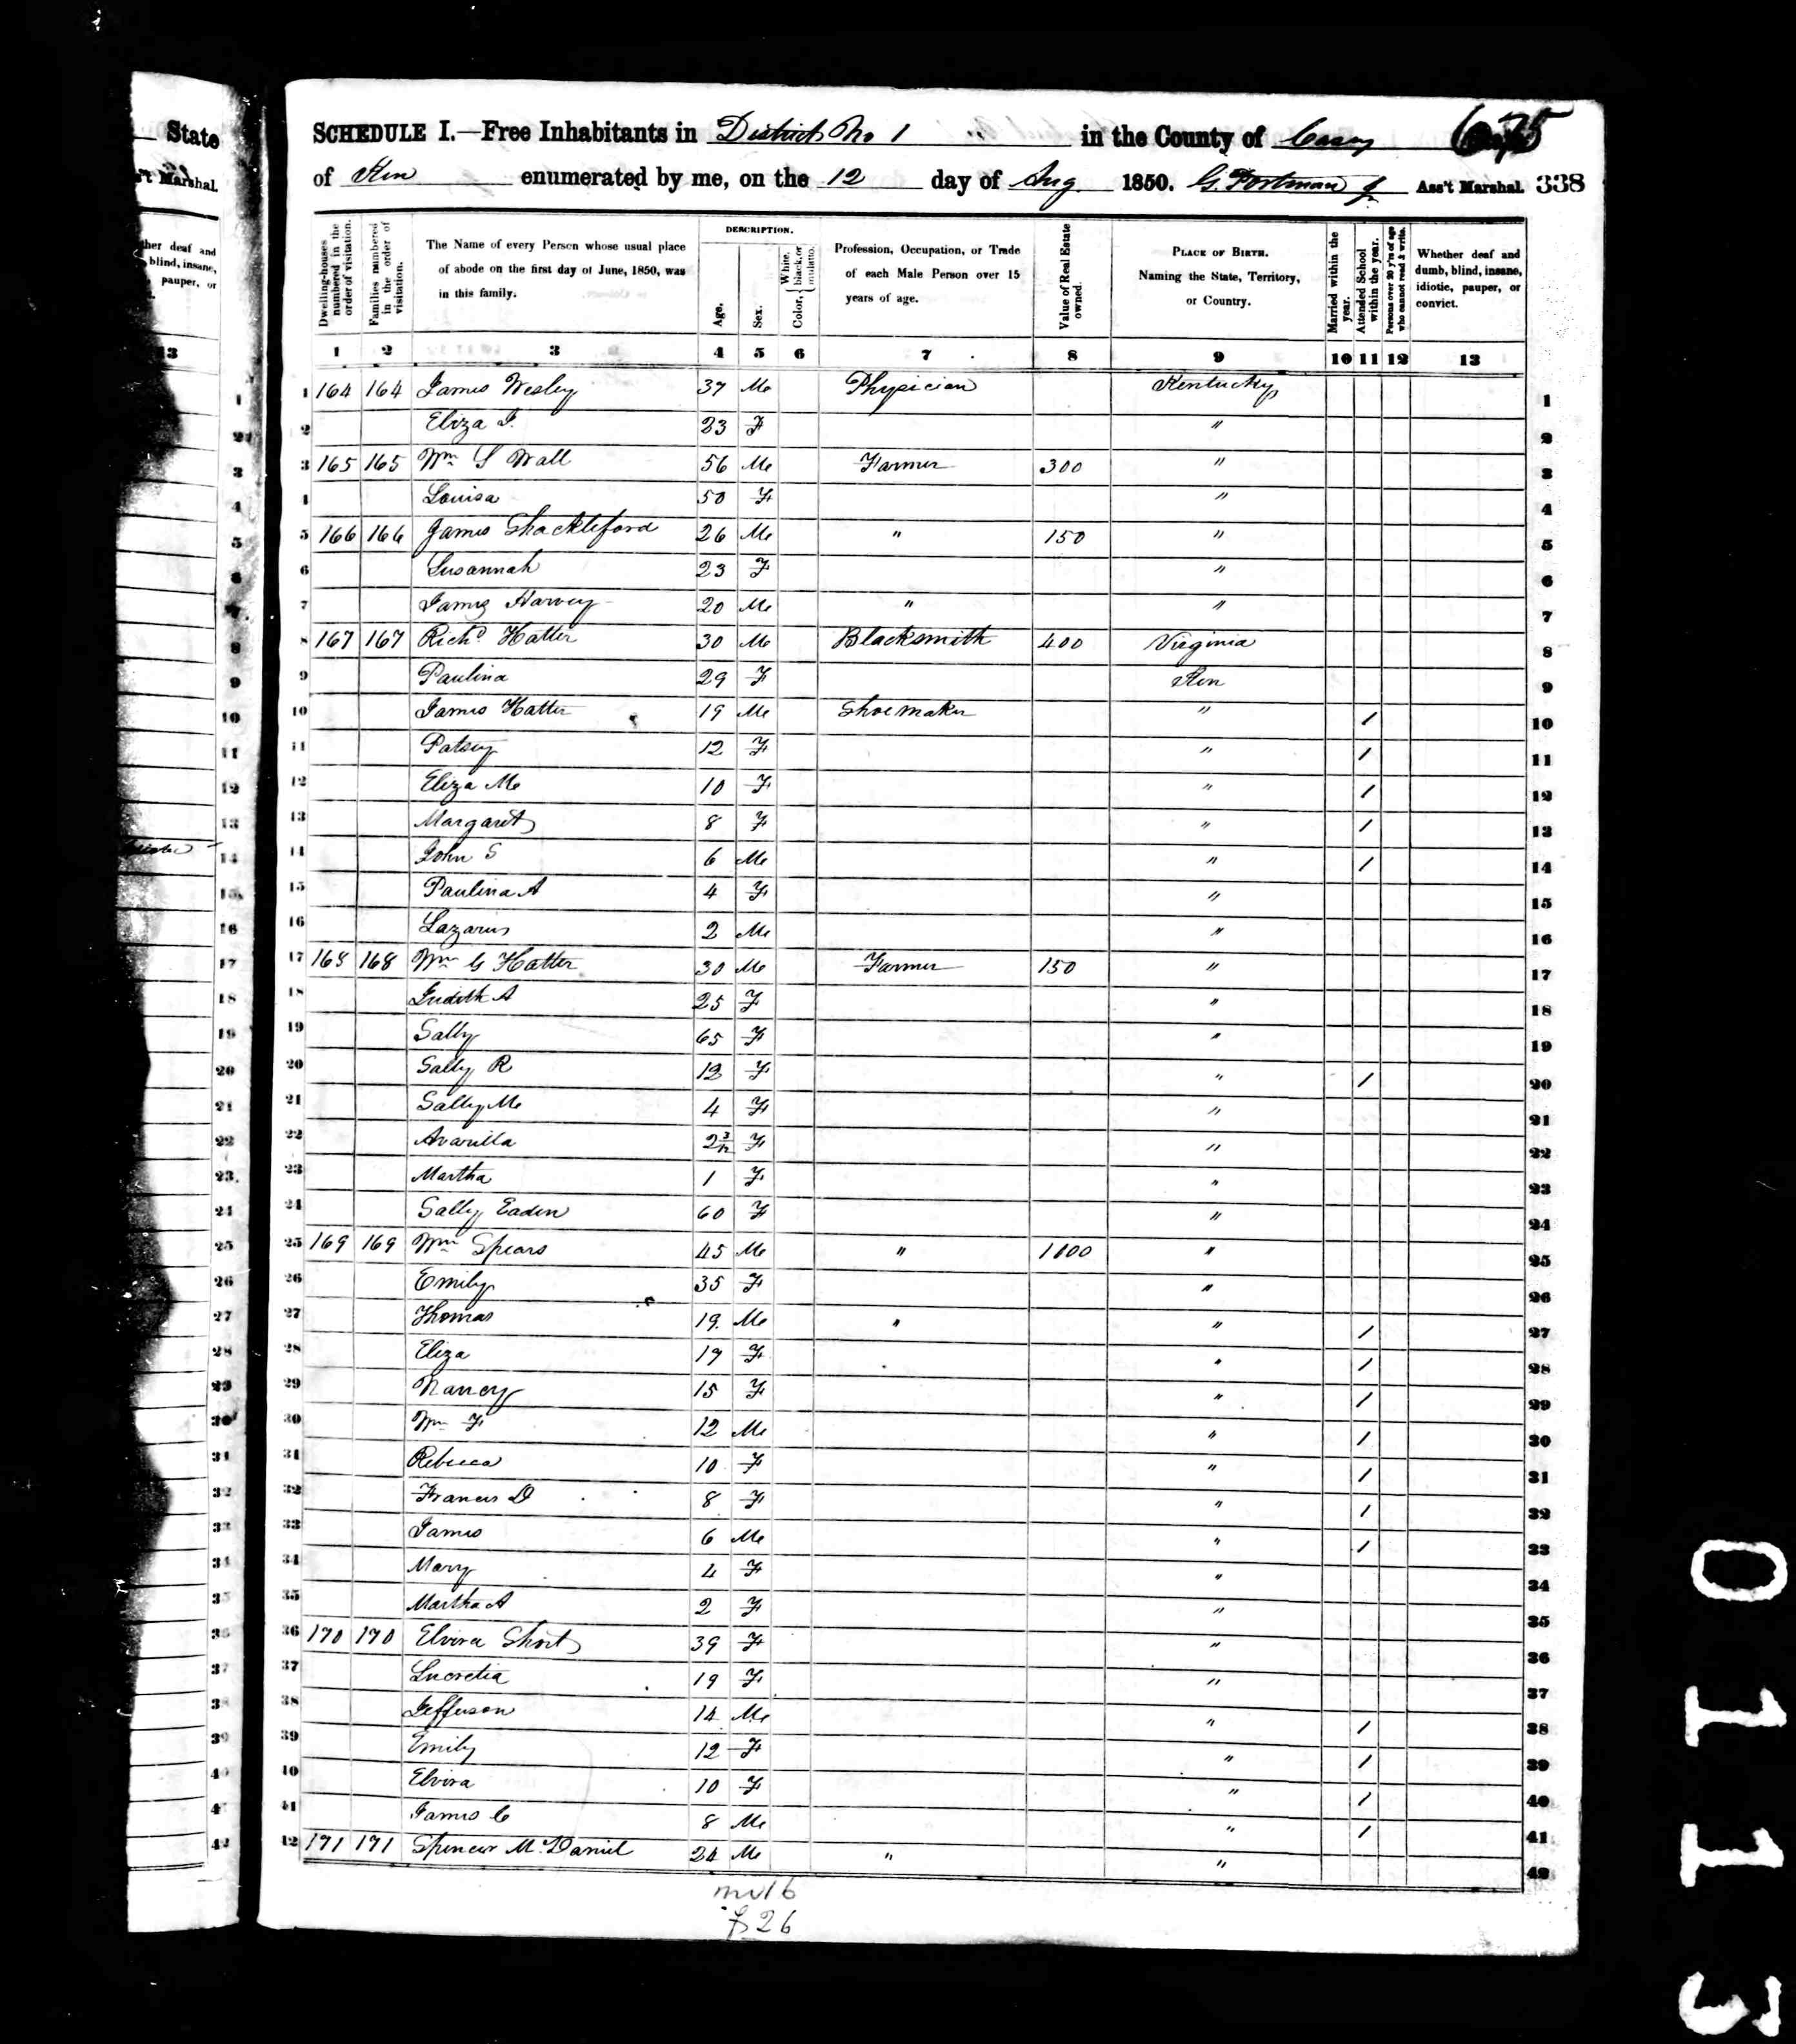 State
't Marshal.
ther deaf and
blind, insane,
pauper, or
13
675
SCHEDULE I.—Free Inhabitants in District No 1 in the County of Casey
of Ken enumerated by me, on the 12 day of Aug 1850. G. Portman Jr Ass't Marshal. 338
Dwelling-houses numbered in the order of visitation.
Families numbered in the order of visitation.
The Name of every Person whose usual place of abode on the first day of June, 1850, was in this family.
DESCRIPTION.
Age.
Sex.
Color, { White, black, or mulatto.
Profession, Occupation, or Trade of each Male Person over 15 years of age.
Value of Real Estate owned.
PLACE OF BIRTH. Naming the State, Territory, or Country.
Married within the year.
Attended School within the year.
Persons over 20 y'rs of age who cannot read & write.
Whether deaf and dumb, blind, insane, idiotic, pauper, or convict.
1 2 3 4 5 6 7 8 9 10 11 12 13
1 164 164 James Wesley 37 M Physician Kentucky 1
2 Eliza J. 23 F " 2
3 165 165 Wm S Wall 56 M Farmer 300 " 3
4 Louisa 50 F " 4
5 166 166 James Shackleford 26 M " 150 " 5
6 Susannah 23 F " 6
7 James Harvey 20 M " " 7
8 167 167 Richd Hatter 30 M Blacksmith 400 Virginia 8
9 Paulina 29 F Ken 9
10 James Hatter 19 M Shoemaker " / 10
11 Patsey 12 F " / 11
12 Eliza M 10 F " / 12
13 Margaret 8 F " / 13
14 John S 6 M " / 14
15 Paulina A 4 F " 15
16 Lazarus 2 M " 16
17 168 168 Wm G Hatter 30 M Farmer 150 " 17
18 Judith A 25 F " 18
19 Sally 65 F " 19
20 Sally R 12 F " / 20
21 Sally M 4 F " 21
22 Avarilla 2 3/12 F " 22
23 Martha 1 F " 23
24 Sally Eaden 60 F " 24
25 169 169 Wm Spears 45 M " 1000 " 25
26 Emily 35 F " 26
27 Thomas 19 M " " / 27
28 Eliza 17 F " / 28
29 Nancy 15 F " / 29
30 Wm F 12 M " / 30
31 Rebecca 10 F " / 31
32 Francis D 8 F " / 32
33 James 6 M " / 33
34 Mary 4 F " 34
35 Martha A 2 F " 35
36 170 170 Elvira Short 39 F " 36
37 Lucretia 19 F " 37
38 Jefferson 14 M " / 38
39 Emily 12 F " / 39
40 Elvira 10 F " / 40
41 James C 8 M " / 41
42 171 171 Spencer McDaniel 24 M " " 42
m 16
f 26
0113